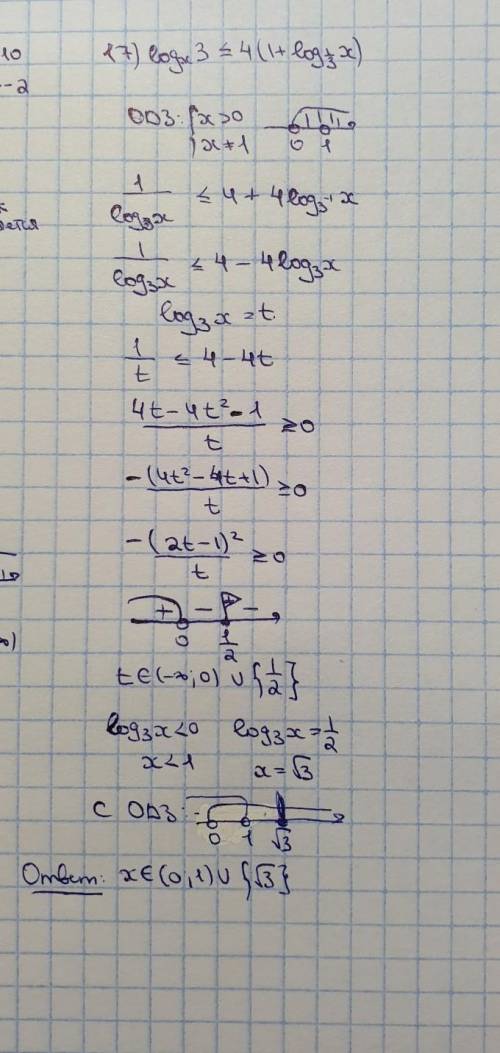 10
--2
17) logₓ3 ≤ 4(1+log_{1/3}x)
ОДЗ: {x>0
x≠1
0 1
1/log₃x ≤ 4 + 4log_{3⁻¹}x
1/log₃x ≤ 4 - 4log₃x
log₃x = t.
1/t ≤ 4 - 4t
(4t - 4t² - 1)/t ≥ 0
(-(4t² - 4t + 1))/t ≥ 0
(-(2t - 1)²)/t ≥ 0
+ - -
0 1/2
t ∈ (-∞; 0) ∪ {1/2}
log₃x < 0 log₃x = 1/2
x < 1 x = √3
С ОДЗ:
0 1 √3
Ответ: x ∈ (0, 1) ∪ {√3}